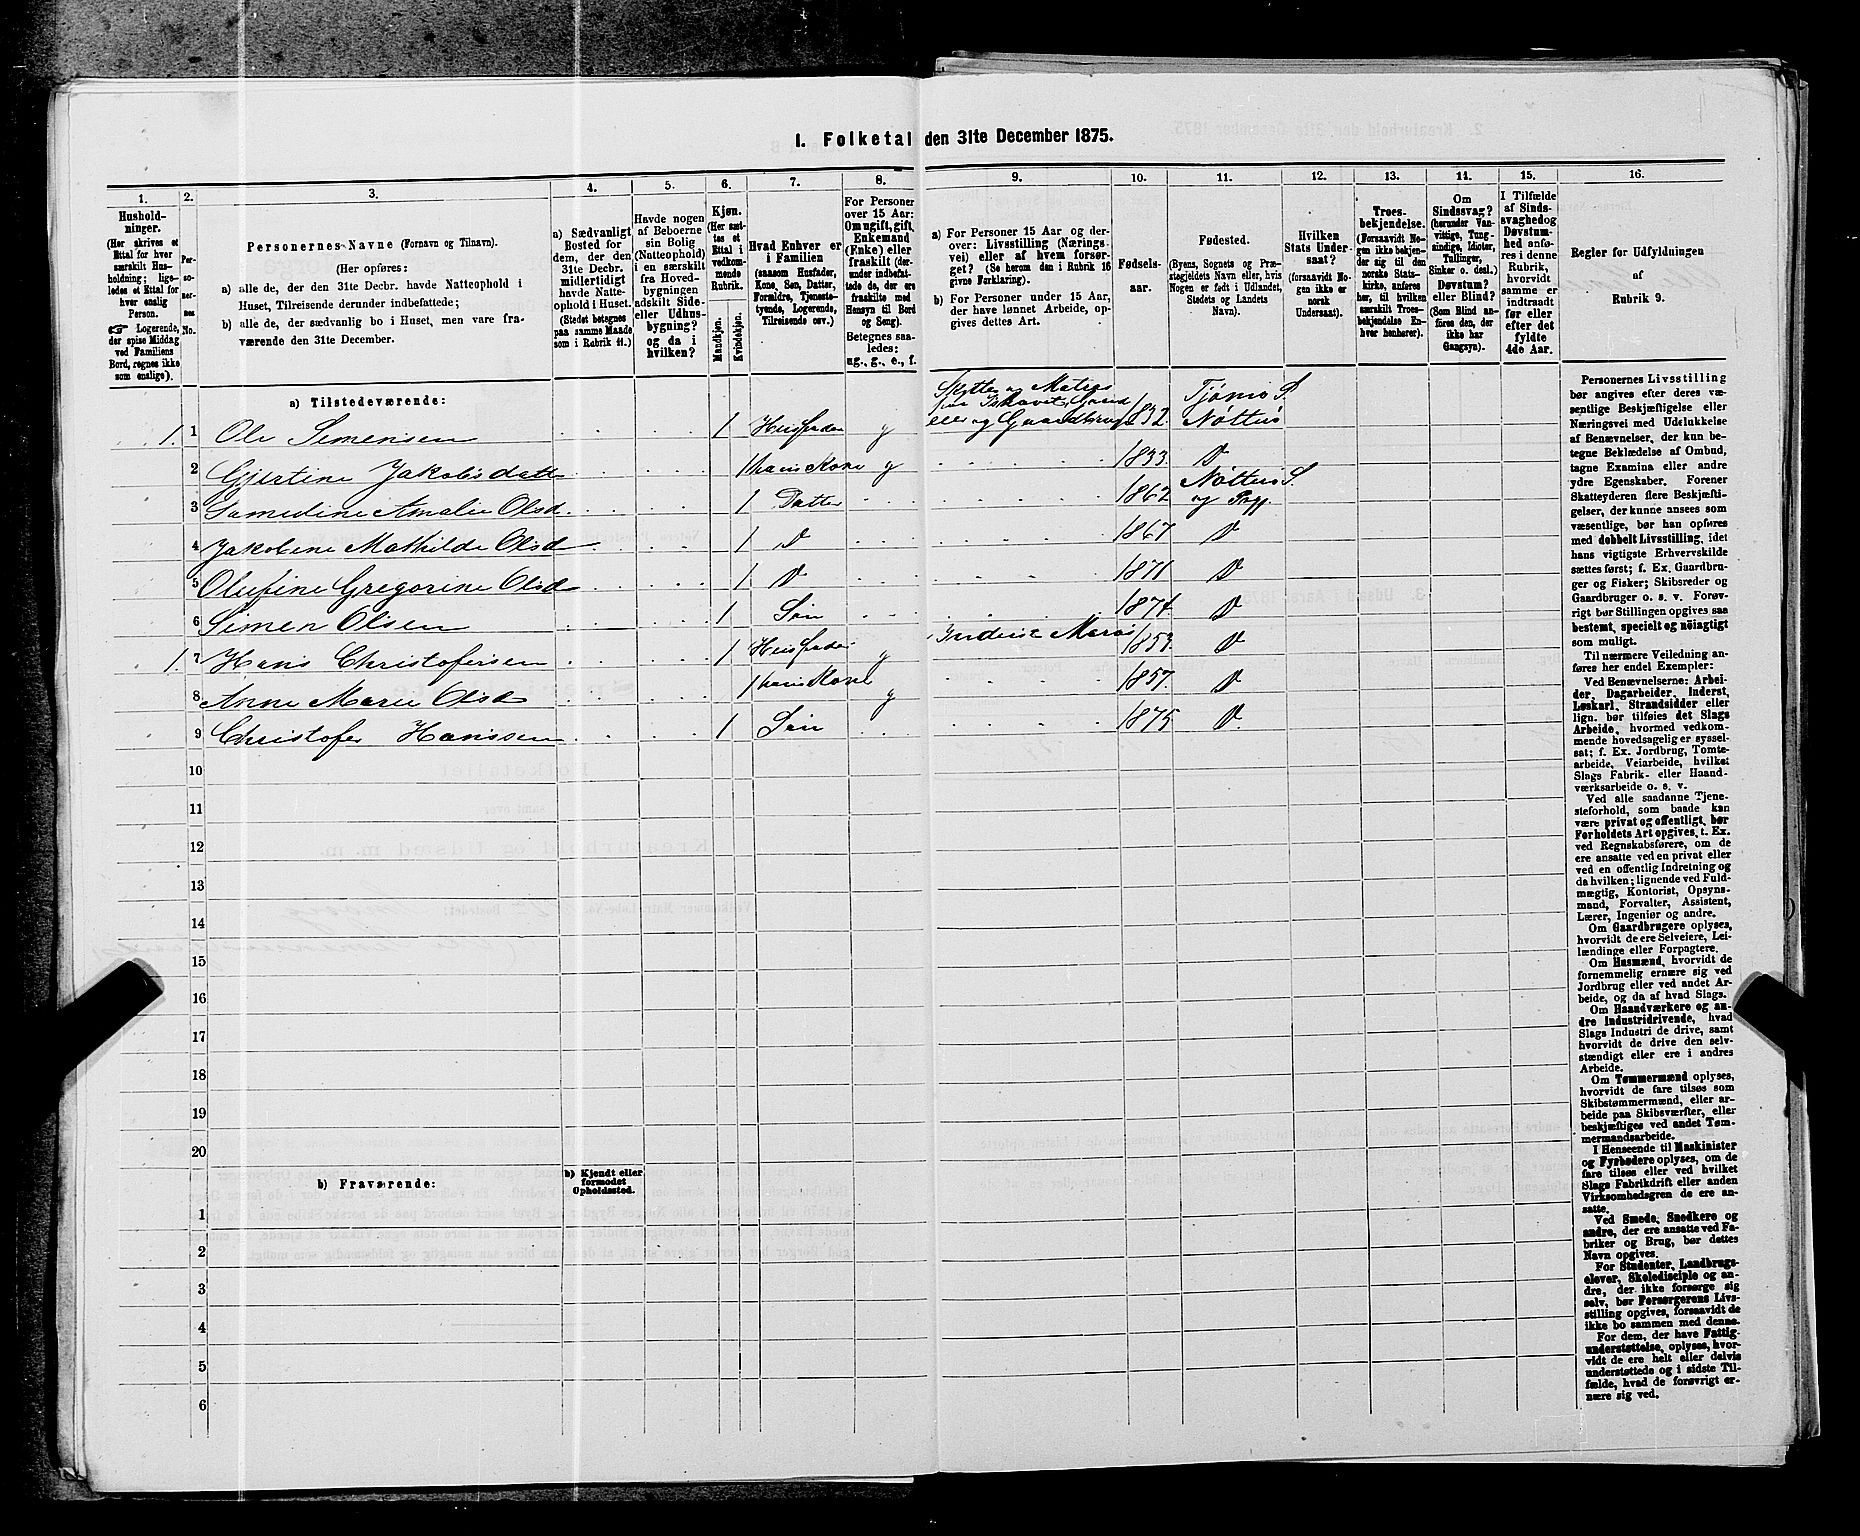 I. Folketal den 31te December 1875.
1. 2. 3. 4. 5. 6. 7. 8. 9. 10. 11. 12. 13. 14. 15. 16.
Hushold-
ninger.
(Her skrives et
Ettal for hver
særskilt Hus-
holdning; lige-
ledes et Ettal for
hver enslig
Person.
☞ Logerende,
der spise Middag
ved Familiens
Bord, regnes ikke
som enslige).
Per-
so-
ner-
nes
No.
Personernes Navne (Fornavn og Tilnavn).
(Her opføres:
a) alle de, der den 31te Decbr. havde Natteophold i
Huset, Tilreisende derunder indbefattede;
b) alle de, der sædvanlig bo i Huset, men vare fra-
værende den 31te December.
a) Sædvanligt
Bosted for
dem, der den
31te Decbr.
midlertidigt
havde Natte-
ophold i Huset.
(Stedet betegnes
paa samme Maade
som i Rubrik 11.)
Havde nogen
af Beboerne
sin Bolig
(Natteophold)
i en særskilt
fra Hoved-
bygningen
adskilt Side-
eller Udhus-
bygning?
og da i
hvilken?
Kjøn.
(Her sæt-
tes et
Ettal i
vedkom-
mende
Rubrik.
Mandkjøn.
Kvindekjøn.
Hvad Enhver er
i Familien
(saasom Husfader,
Kone, Søn, Datter,
Forældre, Tjeneste-
tyende, Logerende,
Tilreisende osv.)
For Personer
over 15 Aar:
Om ugift, gift,
Enkemand
(Enke) eller
fraskilt (der-
under indbefat-
tede de, der ere
fraskilte med
Hensyn til Bord
og Seng).
Betegnes saa-
ledes:
ug., g., e., f.
a) For Personer 15 Aar og der-
over: Livsstilling (Nærings-
vei) eller af hvem forsør-
get? (Se herom den i Rubrik 16
givne Forklaring).
b) For Personer under 15 Aar,
der have lønnet Arbeide, op-
gives dettes Art.
Fødsels-
aar.
Fødested.
(Byens, Sognets og Præ-
stegjeldets Navn eller, hvis
Nogen er født i Udlandet,
Stedets og Landets
Navn).
Hvilken
Stats Under-
saat?
(forsaavidt No-
gen ikke er
norsk
Undersaat).
Troes-
bekjendelse.
(Forsaavidt No-
gen ikke bekjen-
der sig til den
norske Stats-
kirke, anføres
her, til hvilken
Troesbekjendelse En-
hver henhører).
Om
Sindssvag?
(herunder Van-
vittige, Tung-
sindige, Idioter,
Tullinger,
Sinker o. desl.)
Døvstum?
eller Blind?
(Som Blind an-
føres den, der
ikke har
Gangsyn).
I Tilfælde
af Sinds-
svaghed og
Døvstum-
hed anfø-
res i denne
Rubrik,
hvorvidt
samme er
indtraadt
før eller
efter det
fyldte
4de Aar.
Regler for Udfyldningen
af
Rubrik 9.
a) Tilstedeværende:
1. 1 Ole Simensen 1 Husfader g 1832 Tjømø S. Nøtterø
2 Gjertine Jakobsdatt 1 hans Kone g 1833. D
3 Samudine Amalie Olsd. 1 Datter 1862 Nøtterø S. og Prgj.
4 Jakobine Mathilde Olsd 1 D 1867 D
5 Olufine Gregorine Olsd 1 D 1871 D
6 Simen Olsen 1 Søn 1874 D
1. 7 Hans Christofersen 1 Husfader g 1853. D
8 Anne Marie Olsd 1 hans Kone g 1857. D
9 Christofer Hanssen 1 Søn 1875 D.
10
11
12
13
14
15
16
17
18
19
20
b) Fraværende:
b) Kjendt eller
formodet
Opholdssted.
1
2
3
4
5
6
Personernes Livsstilling
bør angives efter deres væ-
sentlige Beskjæftigelse eller
Næringsvei med Udelukkelse
af Benævnelser, der kun be-
tegne Beklædelse af Ombud,
tagne Examina eller andre
ydre Egenskaber. Forener
Skatteyderen flere Beskjæfti-
gelser, der kunne ansees som
væsentlige, bør han opføres
med dobbelt Livsstilling, idet
hans vigtigste Erhvervskilde
sættes først; f. Ex. Gaardbru-
ger og Fisker; Skibsreder og
Gaardbruger o. s. v. Forøv-
rigt bør Stillingen opgives saa
bestemt, specielt og nøiagtigt
som muligt.
Til nærmere Veiledning an-
føres her endel Exempler:
Ved Benævnelserne: Arbei-
der, Dagarbeider, Inderst,
Løskarl, Strandsidder eller
lign. bør tilføies det Slags
Arbeide, hvormed vedkom-
mende hovedsagelig er syssel-
sat; f. Ex. Jordbrug, Tomte-
arbeide, Veiarbeide, hvilket
Slags Fabrik- eller Haand-
værksarbeide o. s. v.
Ved alle saadanne Tjene-
steforhold, som baade kan
være privat og offentligt, bør
Forholdets Art opgives, t. Ex.
ved Regnskabsførere, om de
ere ansatte ved en privat eller
ved en offentlig Indretning og
da hvilken; lignende ved Fuld-
mægtig, Kontorist, Opsyns-
mand, Forvalter, Assistent,
Lærer, Ingeniør og andre.
Om Gaardbrugere oplyses,
hvorvidt de ere Selveiere, Lei-
lændinge eller Forpagtere.
Om Husmænd, hvorvidt de
fornemmelig ernære sig ved
Jordbrug eller ved andet Ar-
beide, og da af hvad Slags.
Om Haandværkere og an-
dre Industridrivende, hvad
Slags Industri de drive, samt
hvorvidt de drive den selv-
stændigt eller ere i andres
Arbeide.
Om Tømmermænd oplyses,
hvorvidt de fare tilsøs som
Skibstømmermænd, eller ar-
beide paa Skibsværfter, eller
beskjæftiges ved andet Tøm-
mermandsarbeide.
I Henseende til Maskinister
og Fyrbødere oplyses, om de
fare tilsøs eller ved hvilket
Slags Fabrikdrift eller anden
Virksomhedsgren de ere an-
satte.
Ved Smede, Snedkere og
andre, der ere ansatte ved Fa-
briker og Brug, bør dettes
Navn opgives.
For Studenter, Landbrugs-
elever, Skoledisciple og an-
dre, der ikke forsørge sig
selv, bør Forsørgerens Livs-
stilling opgives, forsaavidt de
ikke bo sammen med denne.
For dem, der have Fattig-
understøttelse, oplyses, hvor-
vidt de ere helt eller delvis
understøttede og i sidste Til-
fælde, hvad de forøvrigt er-
nære sig ved.